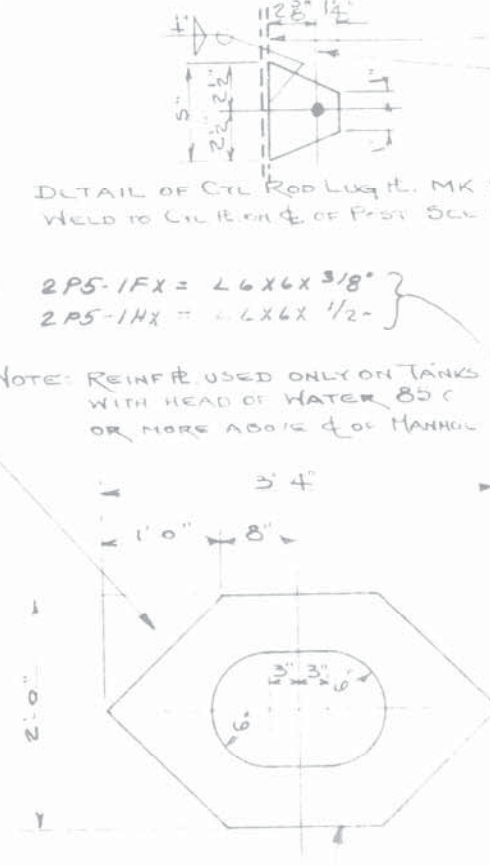 2 3/8" 1 1/4"
5"
2 1/2" 2 1/2"
1"
1"
DETAIL OF CYL ROD LUG PL. MK
WELD TO CYL PL. ON ℄ OF POST SEE
2P5-1FX = L6X6X 3/8"
2P5-1HX = L6X6X 1/2"
NOTE: REINF PL. USED ONLY ON TANKS
WITH HEAD OF WATER 85
OR MORE ABOVE ℄ OF MANHOL
3' 4"
1' 0" 8"
3" 3" 6"
6"
2' 0"